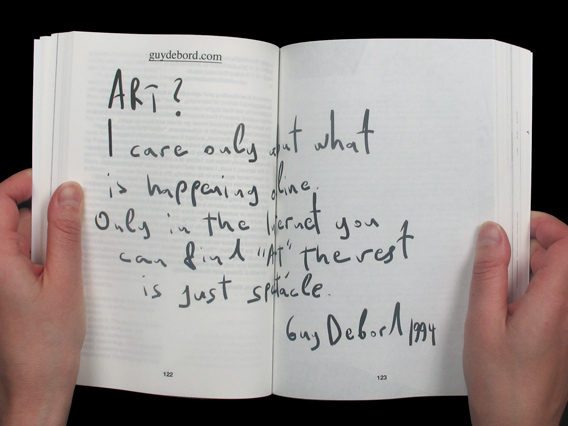 guydebord.com
ART?
I care only what
is happening
Only in the you
can find "Art" the rest
is just
Guy Debord 1994
122
123